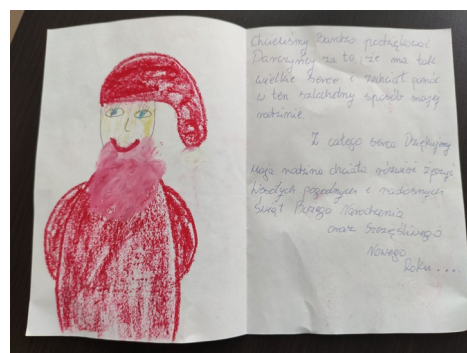 Chcieliśmy bardzo podziękować
Darczyńcy za to, że ma tak
wielkie serce i zechciał pomóc
w ten szlachetny sposób mojej
rodzinie.
Z całego serca Dziękujemy
Moja rodzina chciała również życzyć
Wesołych pogodnych i radosnych
Świąt Bożego Narodzenia
oraz Szczęśliwego
Nowego
Roku....